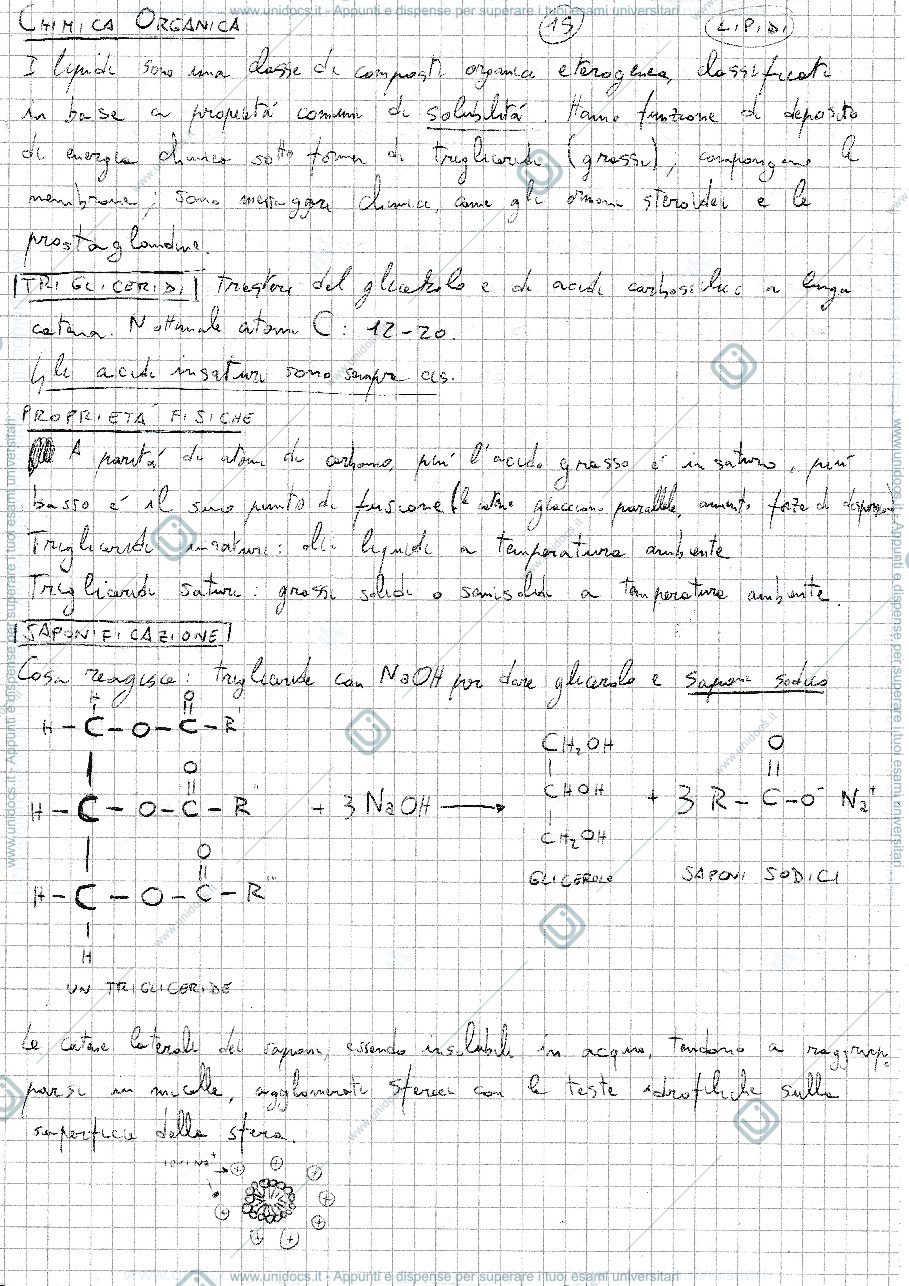 www.unidocs.it - Appunti e dispense per superare i tuoi esami universitari
CHIMICA ORGANICA 15 LIPIDI
I lipidi sono una classe di composti organici eterogenea, classificati
in base a proprietá comuni di solubilitá. Hanno funzione di deposito
di energia chimica sotto forma di trigliceridi (grassi), compongono le
membrane; sono messaggeri chimici, come gli ormoni steroidei e le
prostaglandine.
TRIGLICERIDI Triesteri del glicerolo e di acidi carbossilici a lunga
catena. N ottimale atomi C: 12-20.
Gli acidi insaturi sono sempre cis.
PROPRIETÁ FISICHE
A paritá di atomi di carbonio, piú l'acido grasso é insaturo, piú
basso é il suo punto di fusione (le catene giacciono parallele, aumento forze di dispersione)
Trigliceridi insaturi: oli liquidi a temperatura ambiente
Trigliceridi saturi: grassi solidi o semisolidi a temperatura ambiente.
SAPONIFICAZIONE
Cosa reagisce: trigliceride con NaOH per dare glicerolo e saponi sodici
H O
H - C - O - C - R'
O
H - C - O - C - R'' + 3 NaOH → CH2OH CHOH CH2OH + 3 R - C - O- Na+
O
H - C - O - C - R'''
H
GLICEROLO SAPONI SODICI
UN TRIGLICERIDE
Le catene laterali dei saponi, essendo insolubili in acqua, tendono a raggrup-
parsi in micelle, agglomerati sferici con le teste idrofiliche sulla
superficie della sfera.
IONI Na+
www.unidocs.it - Appunti e dispense per superare i tuoi esami universitari